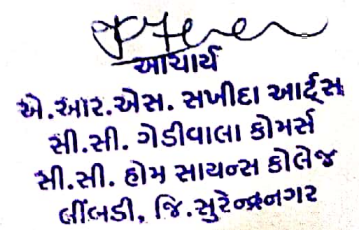 આચાર્ય
એ.આર.એસ. સખીદા આર્ટ્સ
સી.સી. ગેડીવાલા કોમર્સ
સી.સી. હોમ સાયન્સ કોલેજ
લીંબડી, જિ.સુરેન્દ્રનગર